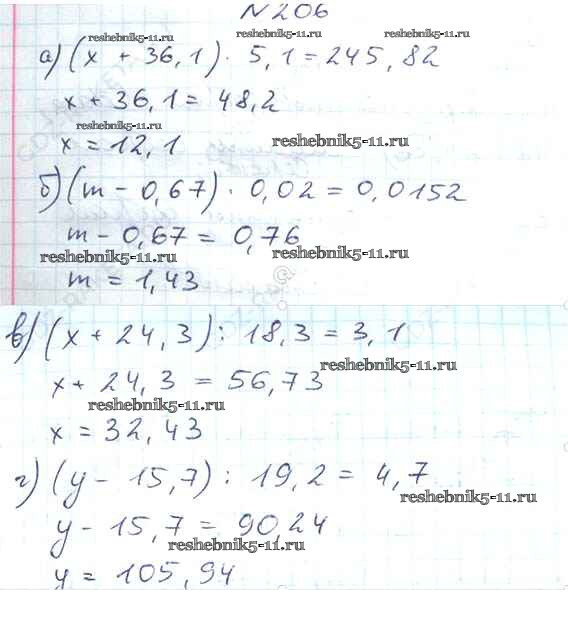 N 206
reshebnik5-11.ru reshebnik5-11.ru reshebnik5-11.ru
а) (x + 36,1) · 5,1 = 245,82
x + 36,1 = 48,2
reshebnik5-11.ru
x = 12,1
reshebnik5-11.ru
б) (m - 0,67) · 0,02 = 0,0152
m - 0,67 = 0,76
reshebnik5-11.ru reshebnik5-11.ru
m = 1,43
в) (x + 24,3) : 18,3 = 3,1
reshebnik5-11.ru
x + 24,3 = 56,73
reshebnik5-11.ru
x = 32,43
г) (y - 15,7) : 19,2 = 4,7
reshebnik5-11.ru
y - 15,7 = 90,24
reshebnik5-11.ru
y = 105,94